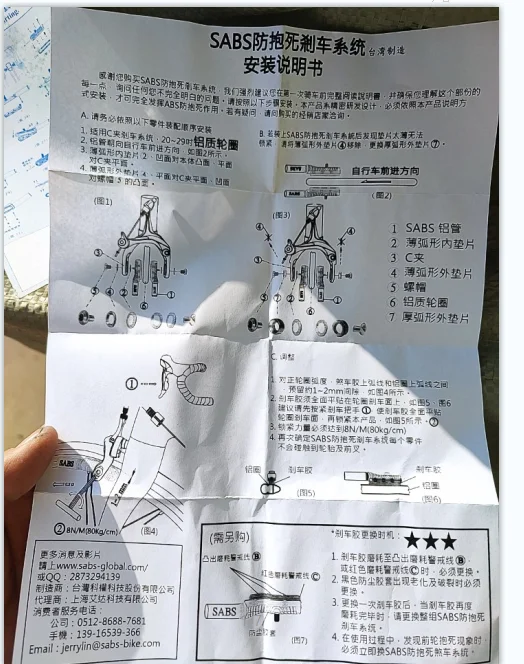 SABS防抱死刹车系统 台湾制造
安装说明书
感谢您购买SABS防抱死刹车系统，我们强烈建议您在第一次骑车前完整阅读説明書，并确保您理解这个部份的
每一点，询问任何您不完全明白的问题。请按照以下步骤安装。本产品系精密研发设计，必须依照本产品说明方
式安装，才可完全发挥ABS防抱死作用。若有疑问，请向购买的经销店家洽询。
A. 请务必依照以下零件装配顺序安装
1. 适用C夹刹车系统，20~29吋铝质轮圈
2. 铝管朝向自行车前进方向，如图2所示。
3. 薄弧形内垫片2，凹面对本体凸面，平面
对C夹平面。
4. 薄弧形外垫片4，平面对C夹平面，凹面
对螺帽5的凸面。
B. 若装上SABS防抱死刹车系统后发现垫片太薄无法
锁紧，请将薄弧形外垫片④移除，更换厚弧形外垫片⑦。
自行车前进方向
(图2)
(图1)
(图3)
1 SABS 铝管
2 薄弧形内垫片
3 C夹
4 薄弧形外垫片
5 螺帽
6 铝质轮圈
7 厚弧形外垫片
C. 调整
1. 对正轮圈弧度，煞车胶上弧线和铝圈上弧线之间
，预留约1~2mm间隙，如图4所示。
2. 刹车胶须全面平贴在轮圈刹车面上，如图5，图6
建议请先按紧刹车把手①，使刹车胶全面平贴
轮圈刹车面，再锁紧本产品，如图5所示。②
3. 锁紧力量必须达到8N/M(80kg/cm)
4. 再次确定SABS防抱死刹车系统每个零件
不会碰触到轮胎及前叉。
①
SABS
1~2 mm
② 8N/M(80Kg/cm)
(图4)
铝圈 刹车胶
(图5)
刹车胶
铝圈
(图6)
更多消息及影片
請上www.sabs-global.com/
或QQ：2873294139
制造商：台灣科權科技股份有限公司
代理商：上海艾达科技有限公司
消費者服务电话：
公司：0512-8688-7681
手機：139-16539-366
Email：jerrylin@sabs-bike.com
(需另购)
凸出磨耗警戒线Ⓑ
红色磨耗警戒线Ⓒ
SABS
防尘胶套
(图7)
*刹车胶更换时机：★★★
1. 刹车胶磨耗至凸出磨耗警戒线Ⓑ，
或红色磨耗警戒线Ⓒ时，必须更换。
2. 黑色防尘胶套出现老化及破裂时必须
更换。
3. 更换一次刹车胶后，当刹车胶再度
磨耗完毕时，请更换整组SABS防抱死
刹车系统。
4. 在使用过程中，发现前轮抱死现象时，
必须立即换SABS防抱死煞车系统。